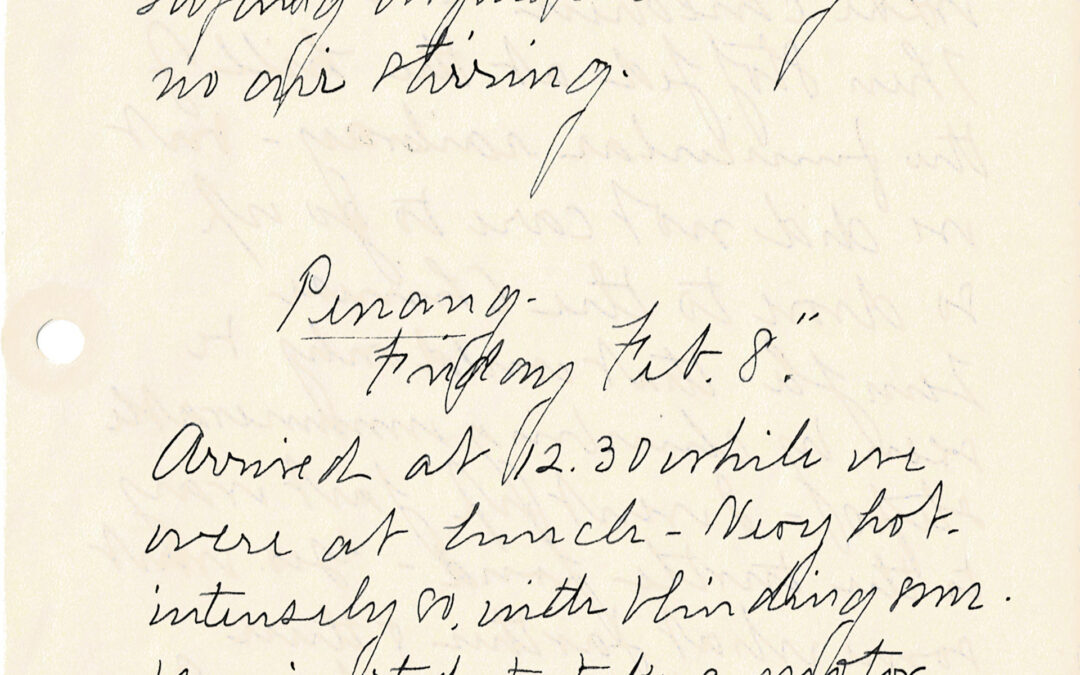 no air stirring.
Penang-
Friday Feb. 8."
Arrived at 12.30 while we
were at lunch - Very hot.
intensely so, with blinding sun.
to take a motor